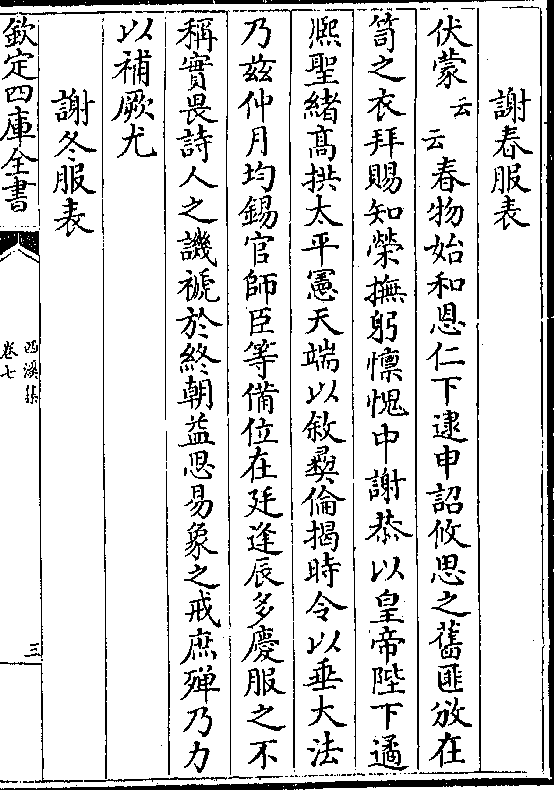 謝春服表
伏蒙云云春物始和恩仁下逮申詔攸思之舊匪放在
笥之衣拜賜知榮撫躬懍愧中謝恭以皇帝陛下遹
熈聖緒髙拱太平憲天端以敘彞倫揭時令以垂大法
乃兹仲月均錫官師臣等備位在廷逢辰多慶服之不
稱實畏詩人之譏褫於終朝益思易象之戒庶殫乃力
以補厥尤
謝冬服表
欽定四庫全書
西溪集
卷七
三